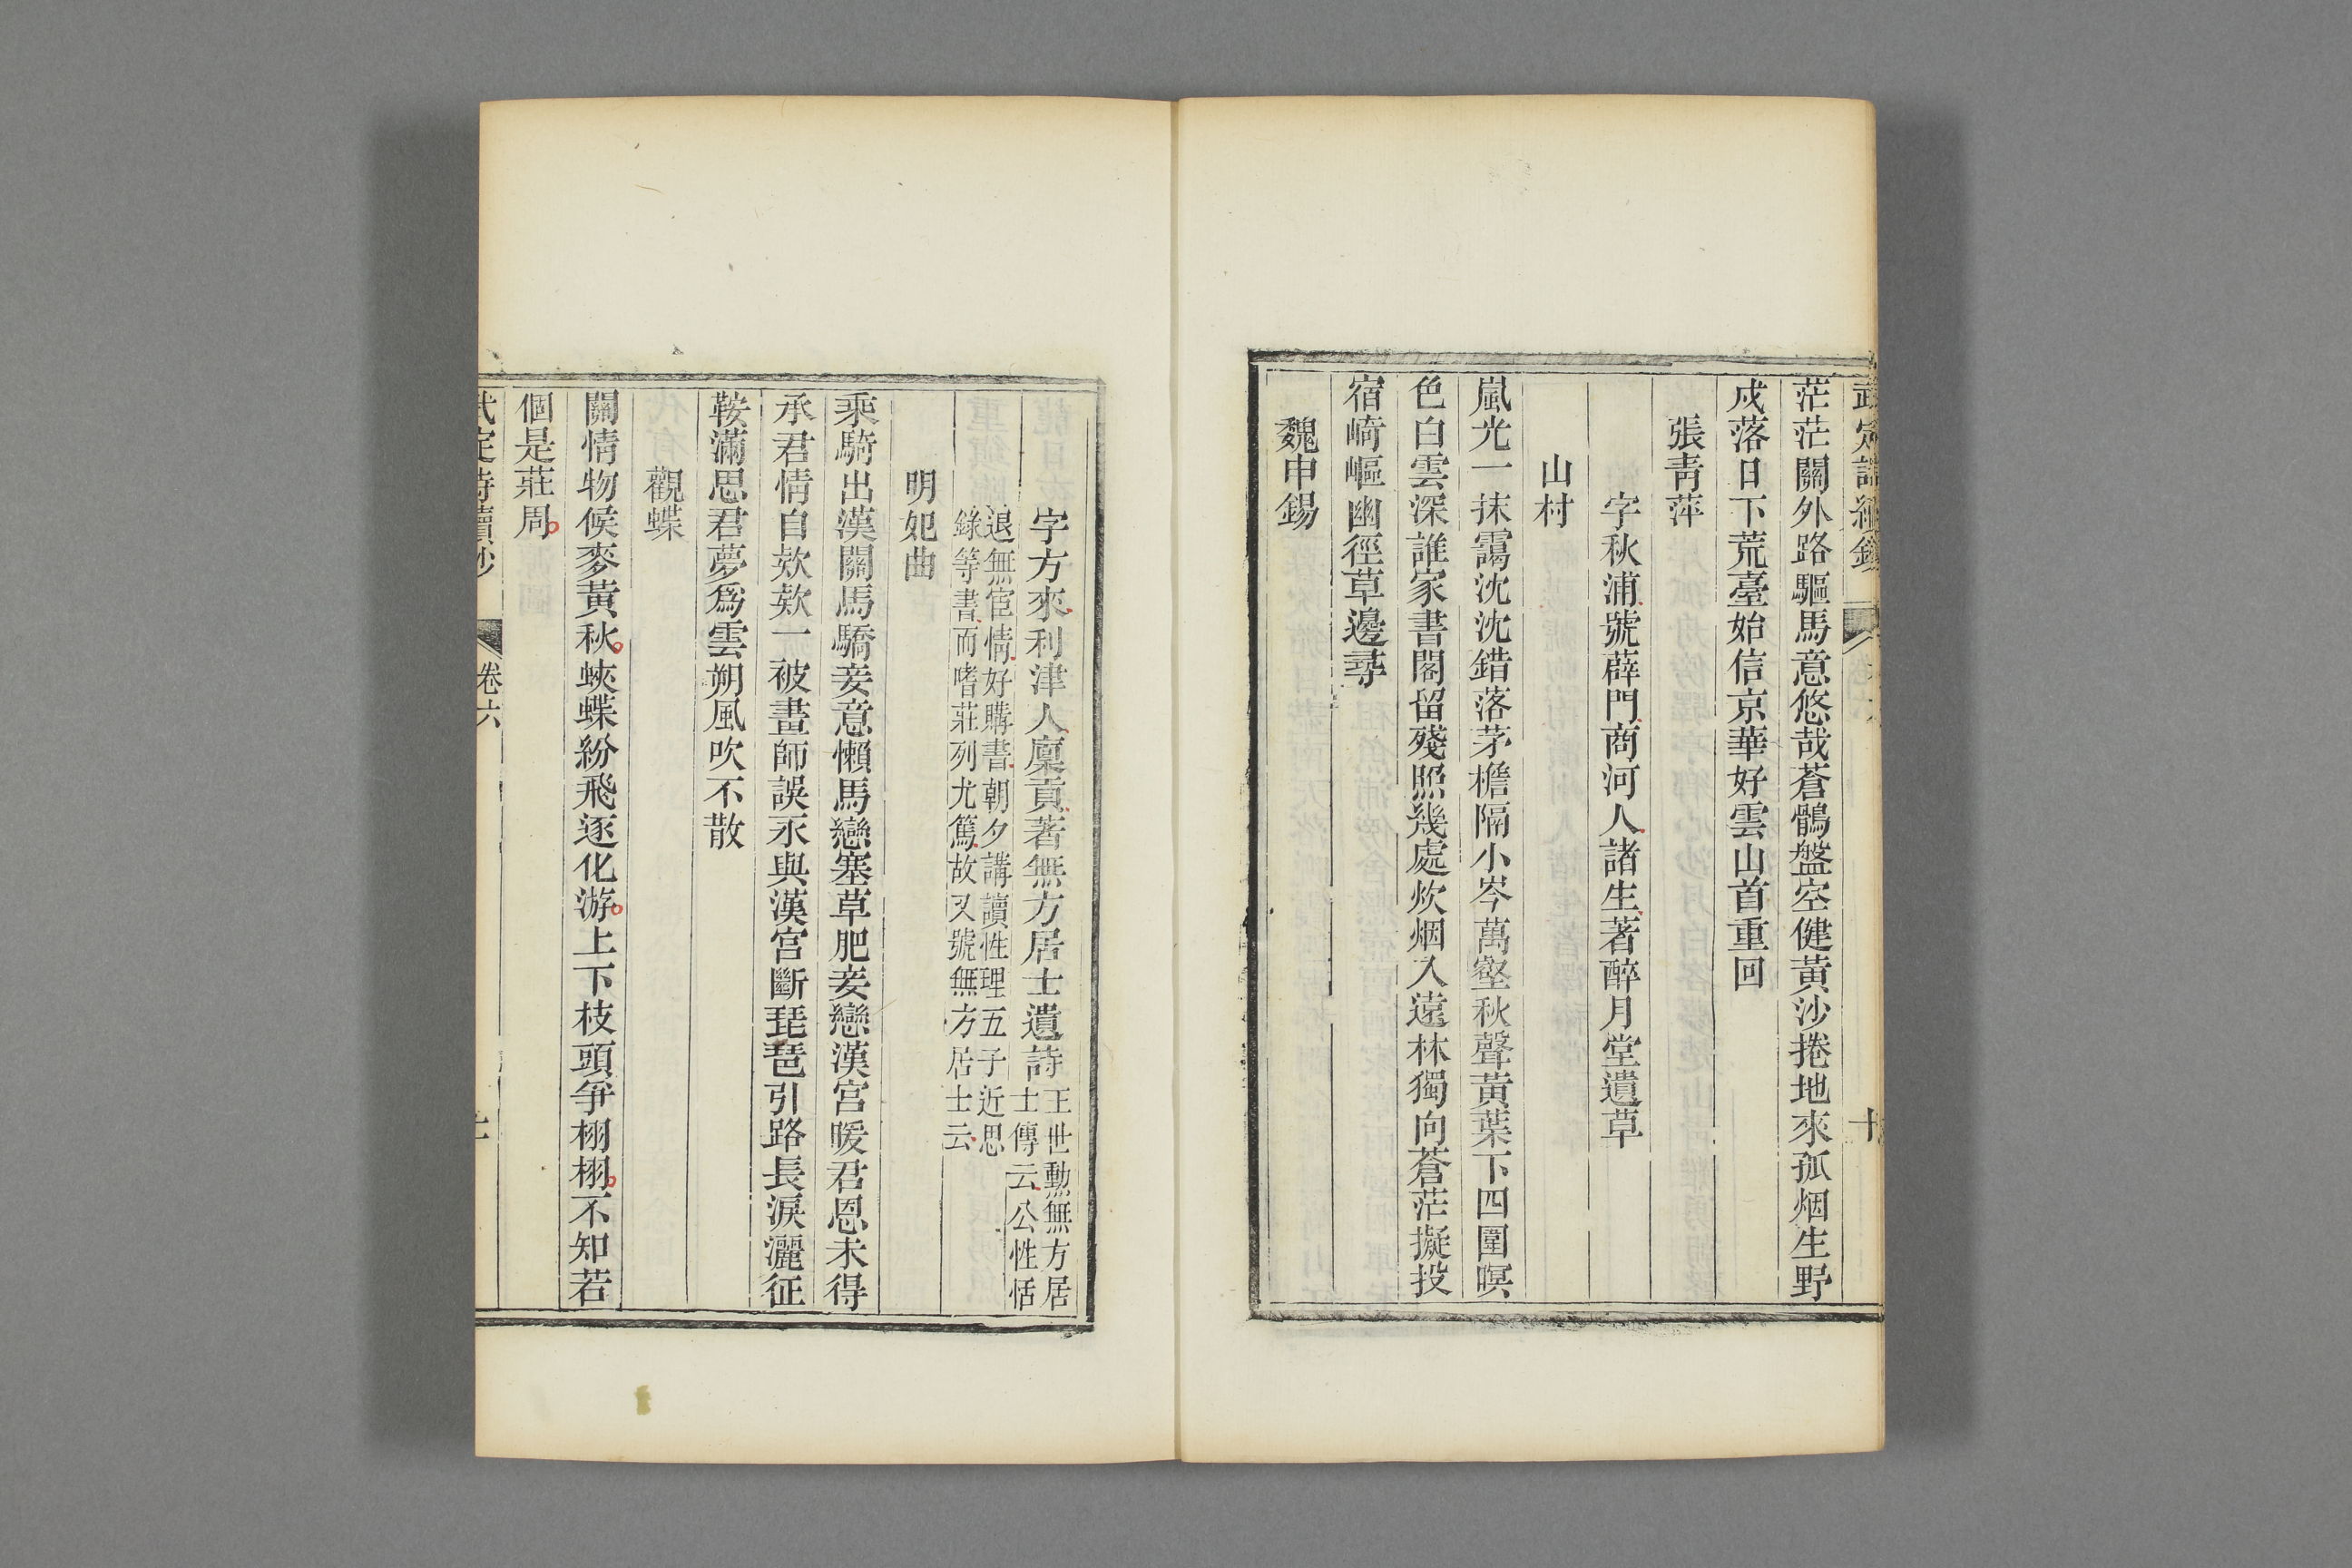 茫茫關外路驅馬意悠哉蒼鶻盤空健黃沙捲地來孤烟生野
戍落日下荒臺始信京華好雲山首重回
張青萍
字秋浦號薜門商河人諸生著醉月堂遺草
山村
嵐光一抹靄沈沈錯落茅檐隔小岑萬壑秋聲黃葉下四圍暝
色白雲深誰家書閣留殘照幾處炊烟入遠林獨向蒼茫擬投
宿崎嶇幽徑草邊尋
魏申錫
字方來利津人廩貢著無方居士遺詩王世勳無方居
士傳云公性恬
退無宦情好購書朝夕講讀性理五子近思
錄等書而嗜莊列尤篤故又號無方居士云
明妃曲
乘騎出漢關馬驕妾意懶馬戀塞草肥妾戀漢宮暖君恩未得
承君情自欵欵一被畫師誤永與漢宮斷琵琶引路長淚灑征
鞍滿思君夢為雲朔風吹不散
觀蝶
關情物候麥黃秋蛺蝶紛飛逐化游上下枝頭爭栩栩不知若
個是莊周
武定詩續鈔 卷六